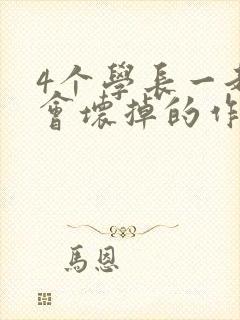 4个學長一
會壞掉的作
馬恩